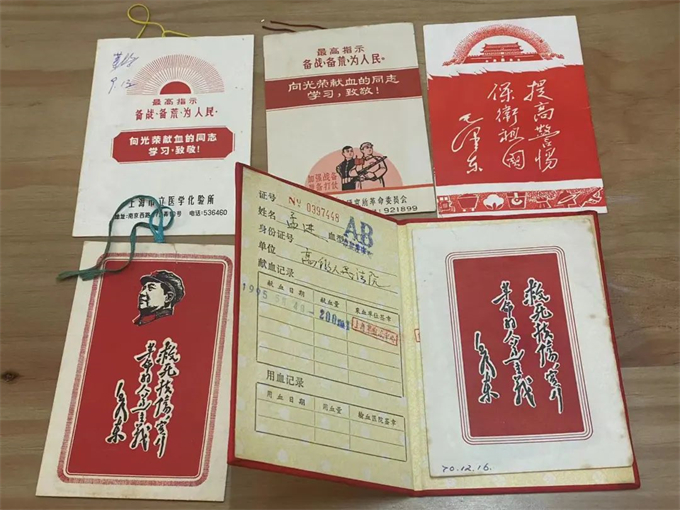 9.13
最高指示
备战、备荒、为人民。
向光荣献血的同志
学习、致敬!
上海市立医学化验所
电话:536460
最高指示
备战、备荒、为人民。
向光荣献血的同志
学习,致敬!
加强战备
准备打仗
革命委员会
921899
提高警惕
保衛祖國
毛泽东
救死扶傷實行
革命的人道主義
毛泽东
证号 № 0397448
姓名 孟进 血型 AB
身份证号
单位 高级人民法院
献血记录
献血日期 献血量 采血单位签章
1995 200ml
用血记录
用血日期 用血量 输血医院签章
救死扶傷實行
革命的人道主義
毛泽东
70.12.16.